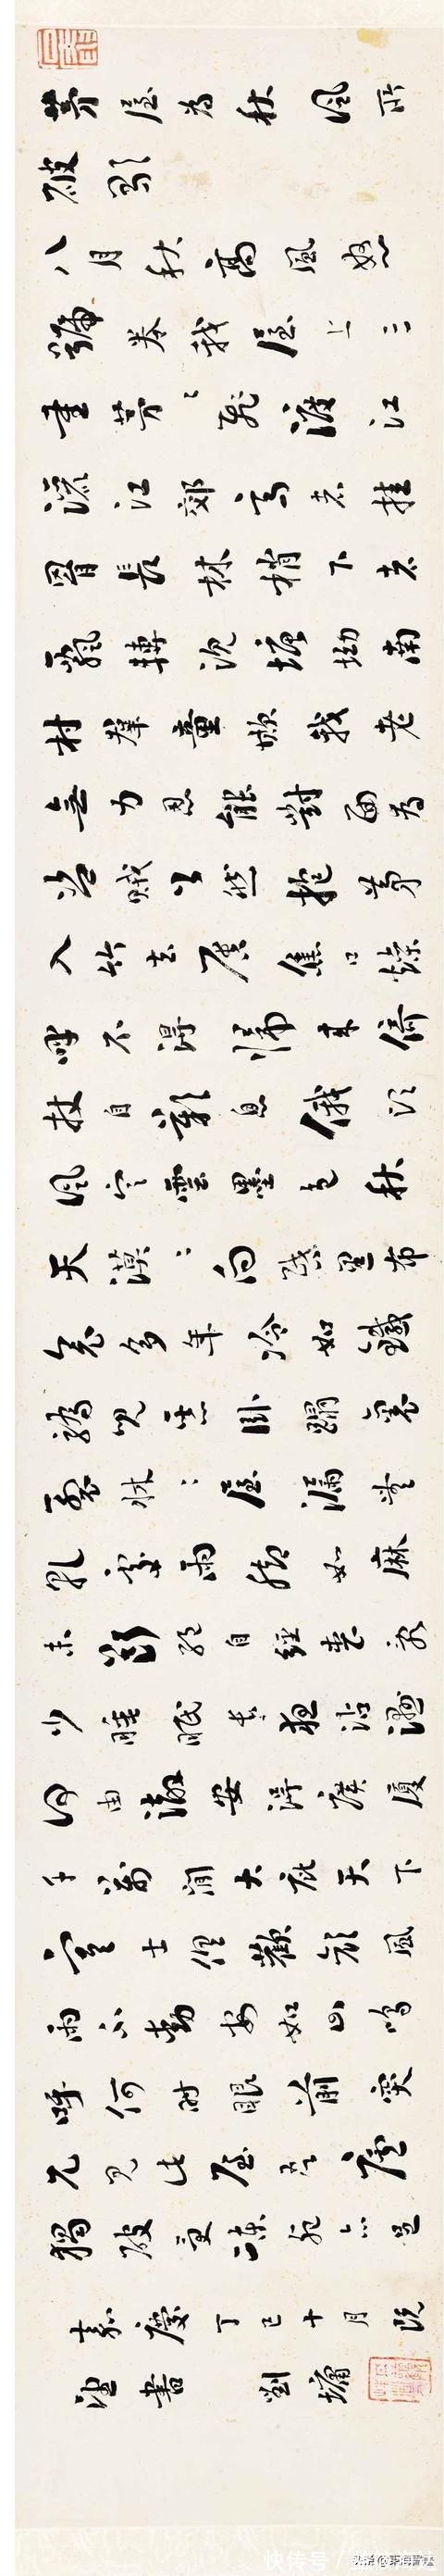 茅屋為秋風所
破歌
八月秋高風怒
號卷我屋上三
重茅〻飛渡江
流江郊高者挂
罥長林梢下者
飄轉沉塘坳南
村群童欺我老
無力忍能對面為
盜賊公然抱茅
入竹去唇焦口燥
呼不得歸來倚
杖自歎息俄頃
風定雲墨色秋
天漠〻向昏黑布
衾多年冷如鐵
驕兒惡臥蹋裏
裂牀〻屋漏無
乾處雨腳如麻
未斷絕自經喪亂
少睡眠長夜沾濕
何由徹安得廣廈
千萬間大庇天下
寒士俱歡顏風
雨不動安如山嗚
呼何時眼前突
兀見此屋吾廬
獨破受凍死亦足
嘉慶丁巳十月既
望書 劉墉